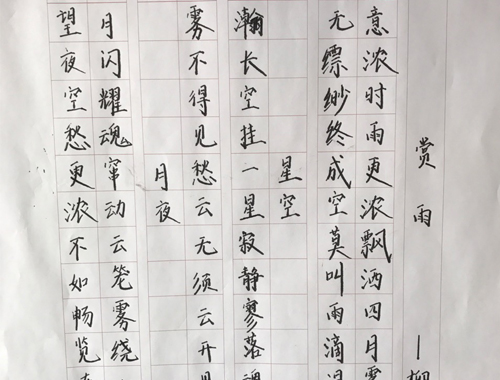 赏雨
意浓时雨更浓飘洒四月
无缥缈终成空莫叫雨滴
星空
瀚长空挂一星寂静寥落
雾不得见愁云无须云开
月夜
月闪耀魂窜动云笼雾绕
望夜空愁更浓不如畅览